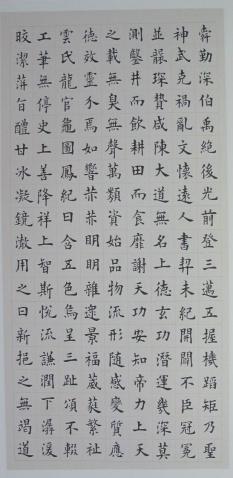 舜勤深伯禹絕後光前登三邁五握機蹈矩乃聖
神武克禍亂文懷遠人書契未紀開闢不臣冠冕
並襲琛贄咸陳大道無名上德玄功潛運幾深莫
測鑿井而飲耕田而食靡謝天功安知帝力上天
之載無臭無聲萬類資始品物流形隨感變質應
德效靈介焉如響赫赫明明雜遝景福葳蕤繁祉
雲氏龍官龜圖鳳紀日含五色烏呈三趾頌不輟
工筆無停史上善降祥上智斯悅流謙潤下潺湲
皎潔蓱旨醴甘冰凝鏡澈用之日新挹之無竭道